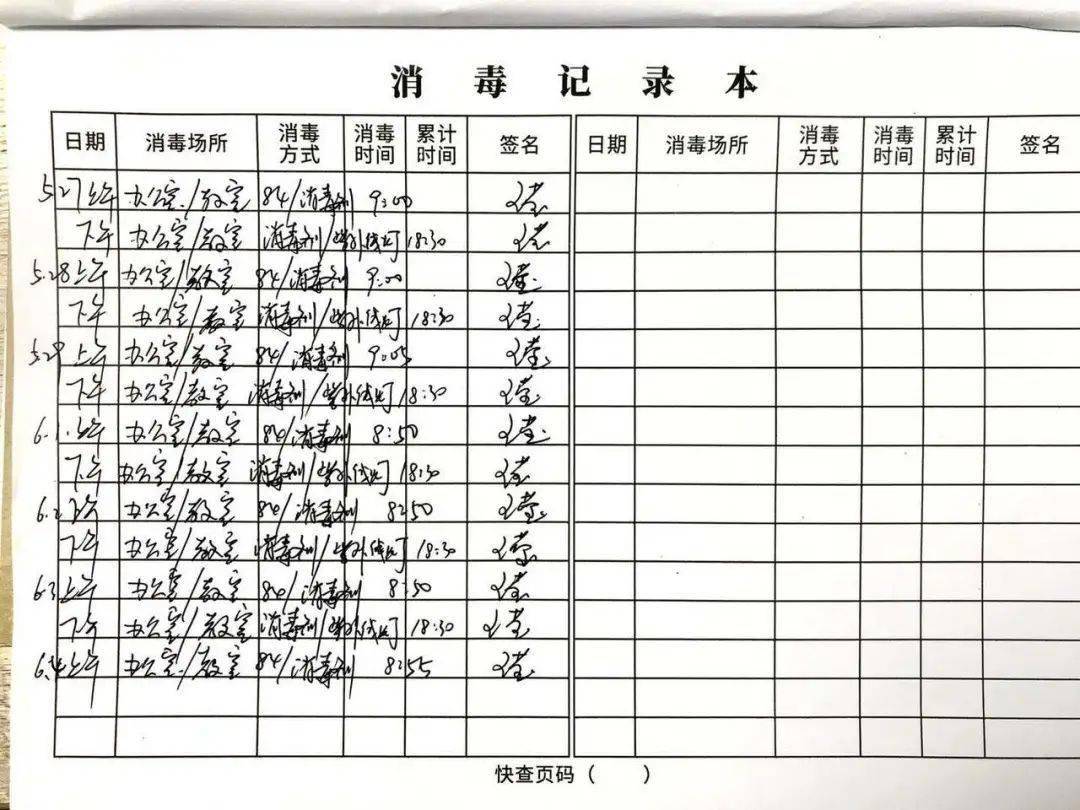 消毒记录本
日期 消毒场所 消毒方式 消毒时间 累计时间 签名 日期 消毒场所 消毒方式 消毒时间 累计时间 签名
5.27上午 办公室/教室 84/消毒剂 9:00
下午 办公室/教室 消毒剂/紫外线灯 18:30
5.28上午 办公室/教室 84/消毒剂 9:00
下午 办公室/教室 消毒剂/紫外线灯 18:30
5.29上午 办公室/教室 84/消毒剂 9:05
下午 办公室/教室 消毒剂/紫外线灯 18:30
6.1.上午 办公室/教室 84/消毒剂 8:50
下午 办公室/教室 消毒剂/紫外线灯 18:30
6.2上午 办公室/教室 84/消毒剂 8:50
下午 办公室/教室 消毒剂/紫外线灯 18:30
6.3上午 办公室/教室 84/消毒剂 8:50
下午 办公室/教室 消毒剂/紫外线灯 18:30
6.4上午 办公室/教室 84/消毒剂 8:55
快查页码（ ）